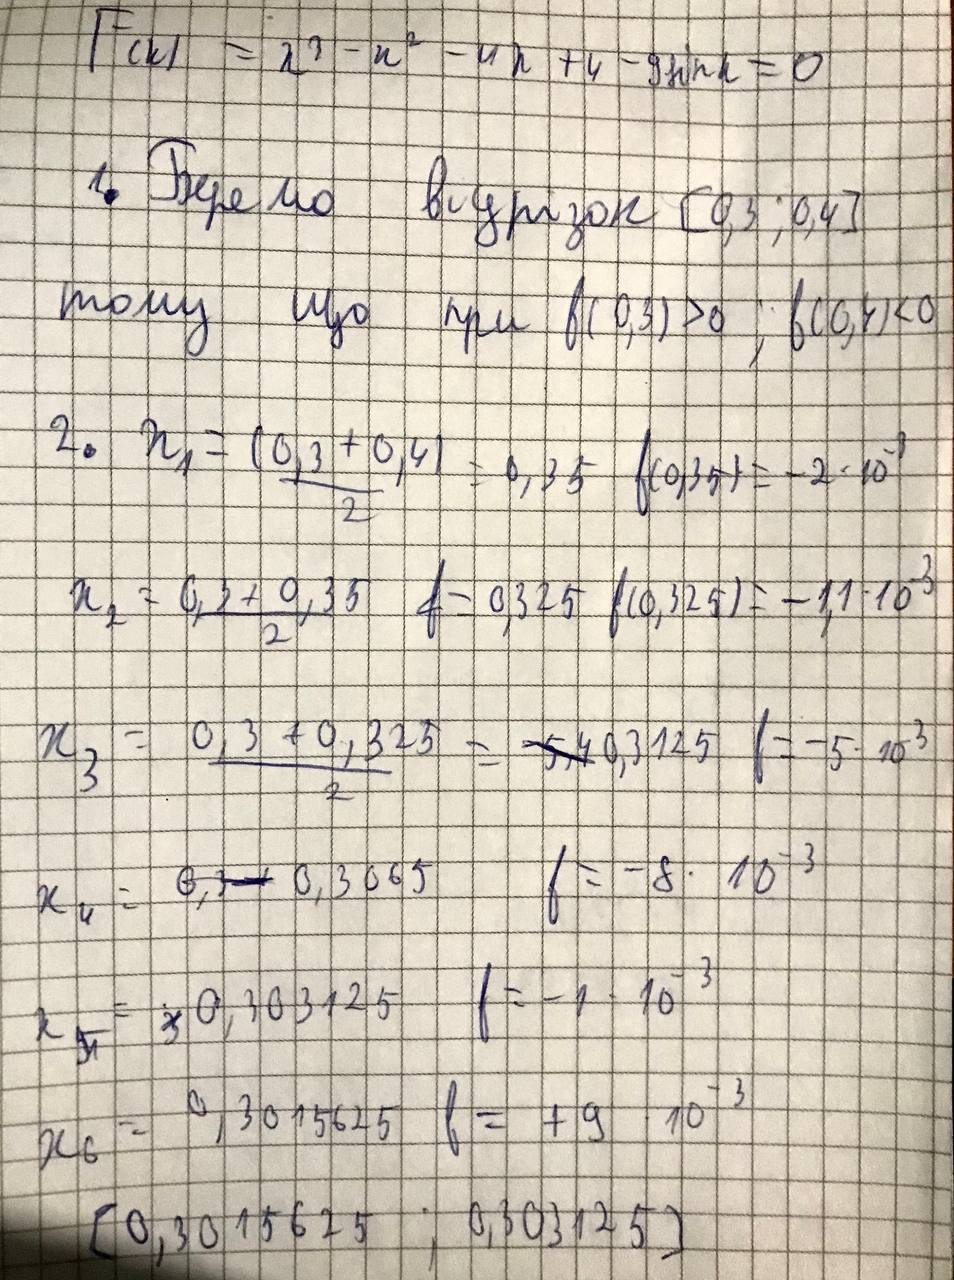 F(x) = x³ - x² - 4x + 4 - 9sinx = 0
1. Беремо відрізок [0,3 ; 0,4]
тому що при f(0,3)>0 ; f(0,4)<0
2. x₁ = (0,3 + 0,4)/2 = 0,35 f(0,35) = -2·10⁻¹
x₂ = 0,3 + 0,35/2 f = 0,325 f(0,325) = -1,1·10⁻³
x₃ = 0,3 + 0,325/2 = 0,3125 f = -5·10⁻³
x₄ = 0,3065 f = -8·10⁻³
x₅ = 0,303125 f = -1·10⁻³
x₆ = 0,3015625 f = +9·10⁻³
[0,3015625 ; 0,303125]